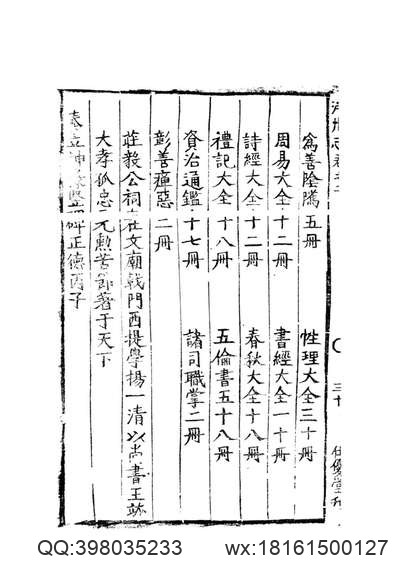 為善陰隲五冊
性理大全三十冊
周易大全十二冊
書經大全一十冊
詩經大全十二冊
春秋大全十八冊
禮記大全十八冊
五倫書五十八冊
資治通鑑十七冊
諸司職掌二冊
彰善癉惡二冊
莊毅公祠在文廟戟門西提學楊一清以尚書王竑
大孝孤忠元勲苦節著于天下
碑正德丙子
QQ:398035233
wx:18161500127